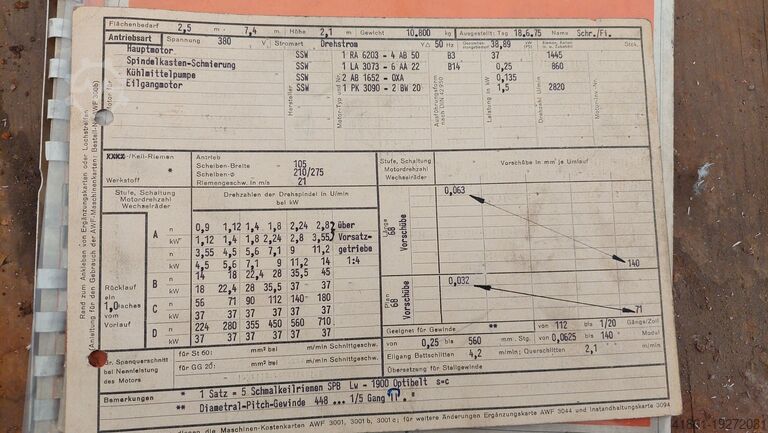 Flächenbedarf 2,5 m · 7,4 m Höhe 2,1 m Gewicht 10.800 kg Ausgestellt: Tag 18.6.75 Name Schr./Fi.
Antriebsart Spannung 380 V Stromart Drehstrom Y△ 50 Hz 38,89 kW Stck.
Hauptmotor SSW 1 RA 6203 - 4 AB 50 B3 37 1445
Spindelkasten-Schmierung SSW 1 LA 3073 - 6 AA 22 B14 0,25 860
Kühlmittelpumpe SSW 2 AB 1652 - OXA 0,135
Eilgangmotor SSW 1 PK 3090 - 2 BW 20 1,5 2820
Motor für
Hersteller
Motor-Typ und -Nr.
Ausführungsform nach DIN 42 950
Leistung in kW
Drehzahl U/min
Motor-Inv.-Nr.
XXXX-/Keil-Riemen *
Werkstoff
Antrieb
Scheiben-Breite 105
Scheiben-ø 210/275
Riemengeschw. in m/s 21
Stufe, Schaltung
Motordrehzahl
Wechselräder
Vorschübe in mm je Umlauf
Stufe, Schaltung
Motordrehzahl
Wechselräder
Drehzahlen der Drehspindel in U/min
bei kW
A n 0,9 1,12 1,4 1,8 2,24 2,8 über
kW 1,12 1,4 1,8 2,24 2,8 3,55 Vorsatz-
n 3,55 4,5 5,6 7,1 9 11,2 getriebe
kW 4,5 5,6 7,1 9 11,2 14 1:4
B n 14 18 22,4 28 35,5 45
kW 18 22,4 28 35,5 37 37
C n 56 71 90 112 140 180
kW 37 37 37 37 37 37
D n 224 280 355 450 560 710
kW 37 37 37 37 37 37
Rücklauf
ein
1,0faches
vom
Vorlauf
Längs 68 Vorschübe
0,063
140
Plan 68 Vorschübe
0,032
71
Geeignet für Gewinde ** von 112 bis 1/20 Gänge/Zoll
von 0,25 bis 560 mm Stg. von 0,0625 bis 140 Modul
Eilgang Bettschlitten 4,2 m/min; Querschlitten 2,1 m/min
Übersetzung für Steilgewinde
gr. Spanquerschnitt
bei Nennleistung
des Motors
für St 60: mm² bei m/min Schnittgeschw.
für GG 20: mm² bei m/min Schnittgeschw.
Bemerkungen * 1 Satz = 5 Schmalkeilriemen SPB Lw = 1900 Optibelt s=c
** Diametral-Pitch-Gewinde 448 ... 1/5 Gang
dienen die Maschinen-Kostenkarten AWF 3001, 3001b, 3001c; für weitere Änderungen Ergänzungskarte AWF 3044 und Instandhaltungskarte 3094
41861-19272081